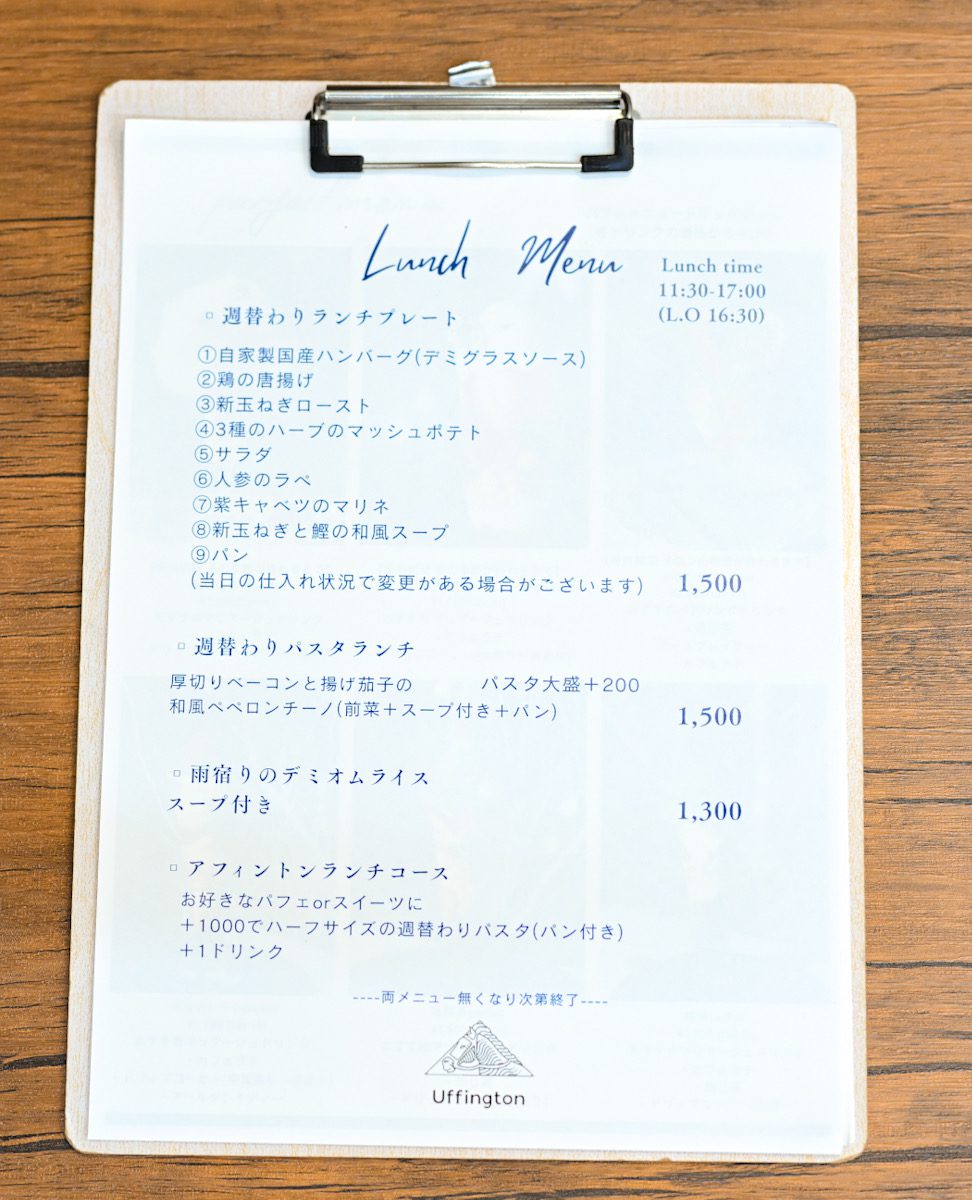 Lunch Menu
Lunch time
11:30-17:00
(L.O 16:30)
▫ 週替わりランチプレート
①自家製国産ハンバーグ(デミグラスソース)
②鶏の唐揚げ
③新玉ねぎロースト
④3種のハーブのマッシュポテト
⑤サラダ
⑥人参のラペ
⑦紫キャベツのマリネ
⑧新玉ねぎと鰹の和風スープ
⑨パン
(当日の仕入れ状況で変更がある場合がございます) 1,500
▫ 週替わりパスタランチ
厚切りベーコンと揚げ茄子の パスタ大盛＋200
和風ペペロンチーノ(前菜＋スープ付き＋パン) 1,500
▫ 雨宿りのデミオムライス
スープ付き 1,300
▫ アフィントンランチコース
お好きなパフェorスイーツに
＋1000でハーフサイズの週替わりパスタ(パン付き)
＋1ドリンク
----両メニュー無くなり次第終了----
Uffington